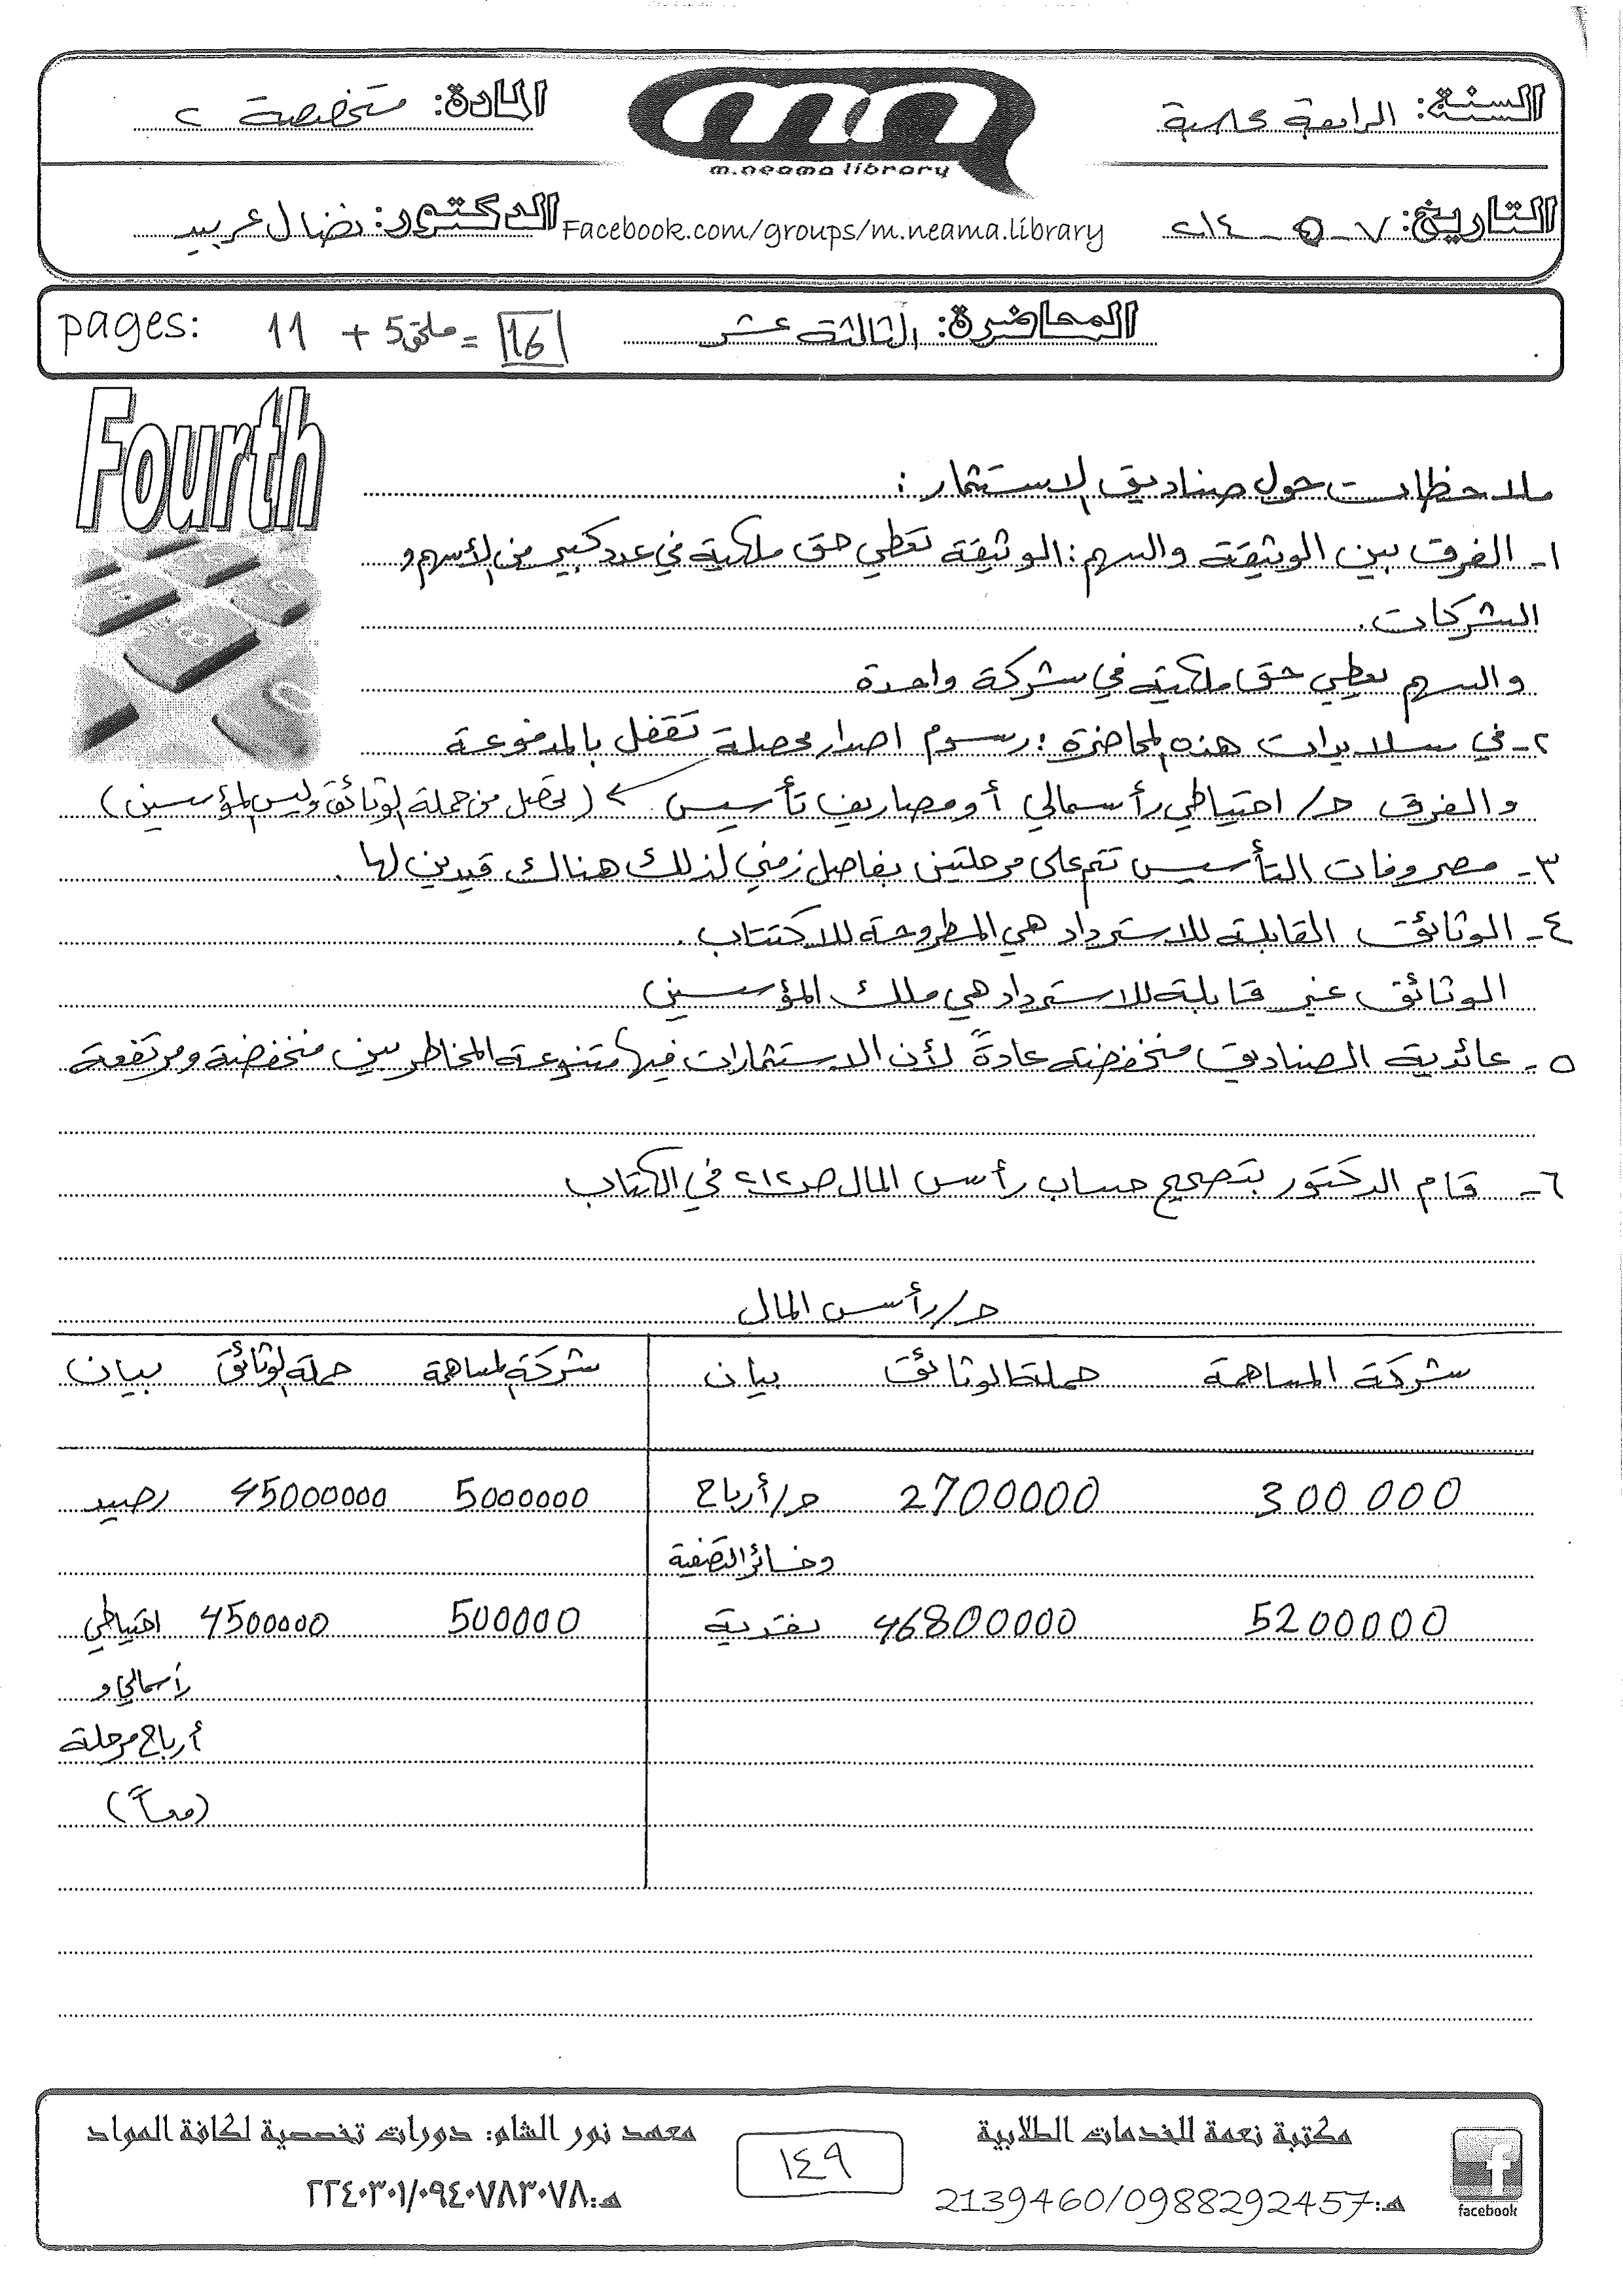 السنة: الرابعة محاسبة
المادة: متخصصة ٢
m.neama library
التاريخ: ٧-٥-٢٠١٤
Facebook.com/groups/m.neama.library
الدكتور: نضال عربيد
المحاضرة: الثالثة عشر
pages: 11 + ملحق 5 = 16
Fourth
ملاحظات حول صناديق الاستثمار:
١- الفرق بين الوثيقة والسهم: الوثيقة تعطي حق ملكية في عدد كبير من الأسهم و
الشركات.
والسهم يعطي حق ملكية في شركة واحدة
٢- في سلايدات هذه المحاضرة: رسوم اصدار محصلة تقفل بالمدفوعة
والفرق ح/ احتياطي رأسمالي أو مصاريف تأسيس (تحصل من حملة الوثائق وليس المؤسسين)
٣- مصروفات التأسيس تتم على مرحلتين بفاصل زمني لذلك هناك قيدين لها.
٤- الوثائق القابلة للاسترداد هي المطروحة للاكتتاب.
الوثائق غير قابلة للاسترداد هي ملك المؤسسين
٥- عائدية الصناديق منخفضة عادةً لأن الاستثمارات فيها متنوعة المخاطر بين منخفضة ومرتفعة
٦- قام الدكتور بتصحيح حساب رأس المال ص٢١٢ في الكتاب
ح/رأس المال
شركة المساهمة حملة الوثائق بيان شركة المساهمة حملة الوثائق بيان
300 000 2700000 ح/أرباح 5000000 45000000 رصيد
وخسائر التصفية
5200000 46800000 نقدية 500000 4500000 احتياطي
رأسمالي و
أرباح مرحلة
(معاً)
مكتبة نعمة للخدمات الطلابية
هـ: 2139460/0988292457
facebook
١٤٩
معهد نور الشام: دورات تخصصية لكافة المواد
هـ: ٢٢٤٠٣٠١/٠٩٤٠٧٨٣٠٧٨